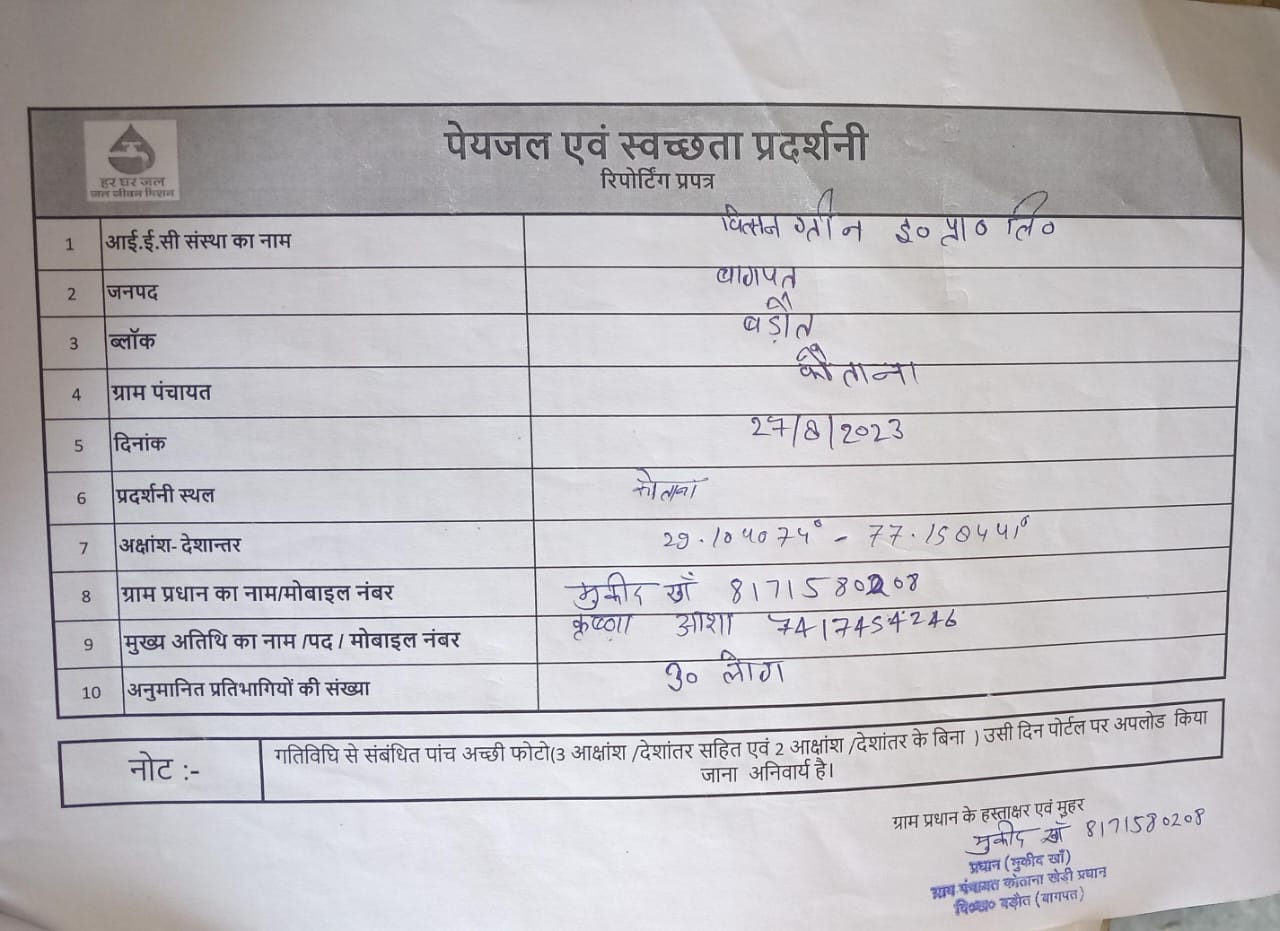 हर घर जल
जल जीवन मिशन
पेयजल एवं स्वच्छता प्रदर्शनी
रिपोर्टिंग प्रपत्र
1 आई.ई.सी संस्था का नाम विज़न ग्रीन इ० प्रा० लि०
2 जनपद बागपत
3 ब्लॉक बड़ौत
4 ग्राम पंचायत कौताना
5 दिनांक 27/8/2023
6 प्रदर्शनी स्थल कोताना
7 अक्षांश- देशान्तर 29.104074° - 77.158441°
8 ग्राम प्रधान का नाम/मोबाइल नंबर मुकीद खाँ 8171580208
9 मुख्य अतिथि का नाम /पद / मोबाइल नंबर कृष्णा आशा 7417454246
10 अनुमानित प्रतिभागियों की संख्या 30 लोग
नोट :- गतिविधि से संबंधित पांच अच्छी फोटो(3 आक्षांश /देशांतर सहित एवं 2 आक्षांश /देशांतर के बिना ) उसी दिन पोर्टल पर अपलोड किया
जाना अनिवार्य है।
ग्राम प्रधान के हस्ताक्षर एवं मुहर
मुकीद खाँ 8171580208
प्रधान (मुकीद खाँ)
ग्राम पंचायत कोताना खेड़ी प्रधान
वि०ख० बड़ौत (बागपत)